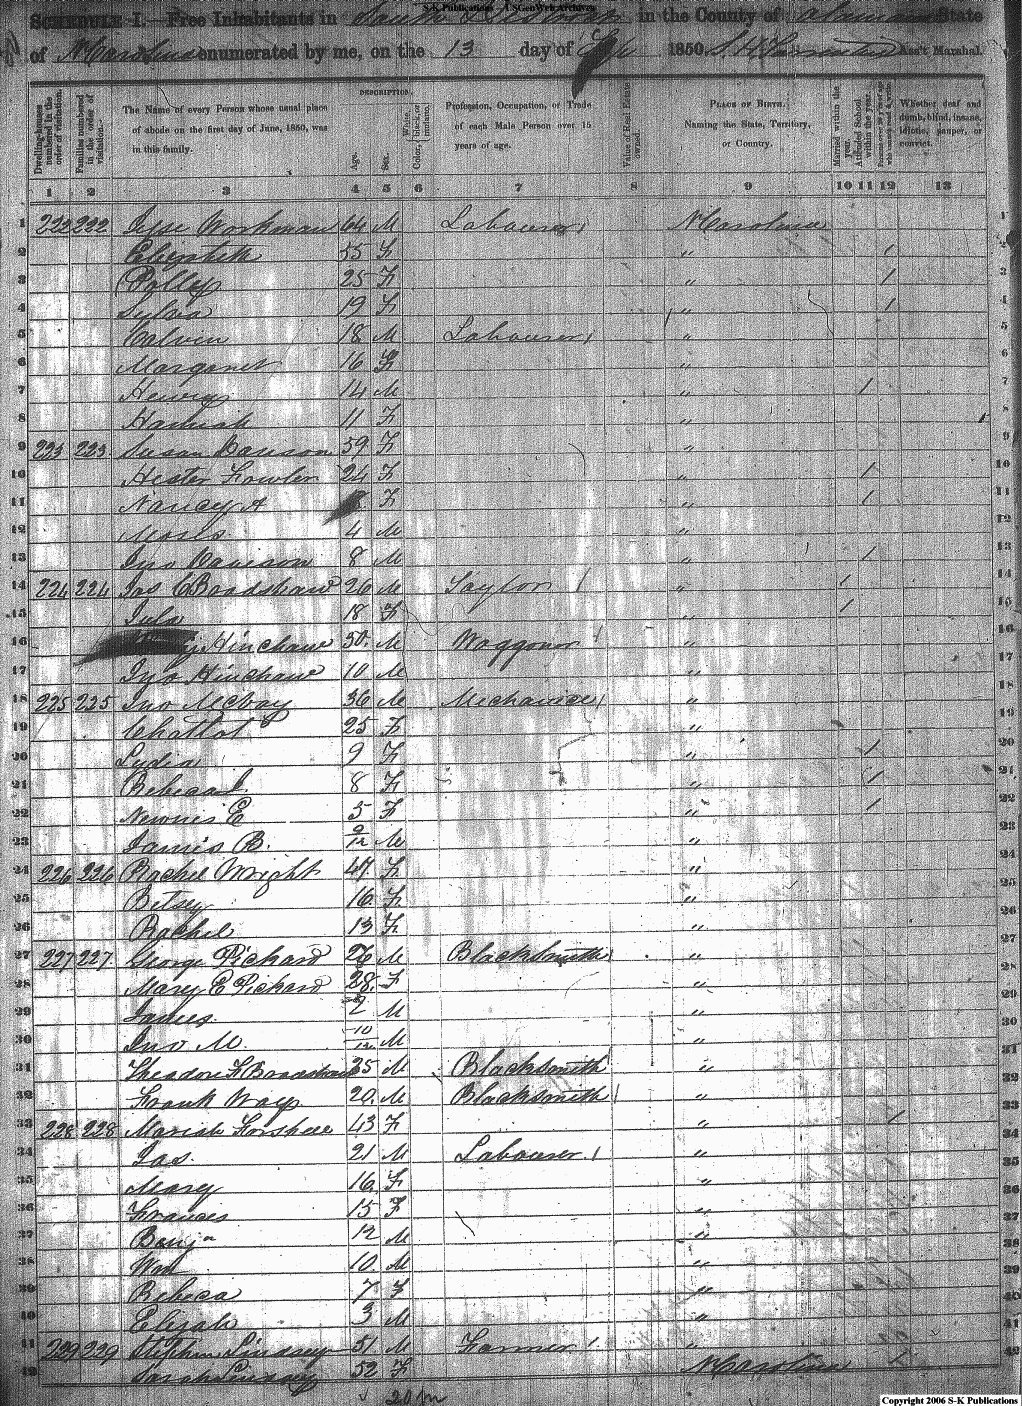 S-K Publications - USGenWeb Archives
SCHEDULE I.—Free Inhabitants in South in the County of Alamance State
of N Carolina enumerated by me, on the 13 day of 1850. Ass't Marshal.
Dwelling-houses numbered in the order of visitation.
Families numbered in the order of visitation.
The Name of every Person whose usual place of abode on the first day of June, 1850, was in this family.
DESCRIPTION.
Age.
Sex.
Color, White, black, or mulatto.
Profession, Occupation, or Trade of each Male Person over 15 years of age.
Value of Real Estate owned.
PLACE OF BIRTH. Naming the State, Territory, or Country.
Married within the year.
Attended School within the year.
Persons over 20 y'rs of age who cannot read & write.
Whether deaf and dumb, blind, insane, idiotic, pauper, or convict.
1 2 3 4 5 6 7 8 9 10 11 12 13
1 222 222 Jesse Workman 64 M Labourer / N Carolina 1
2 Elizabeth 55 F " / 2
3 Polley 25 F " / 3
4 Sylvia 19 F " / 4
5 Calvin 18 M Labourer / " 5
6 Margaret 16 F " 6
7 Henry 14 M " / 7
8 Hannah 11 F " 8
9 223 223 Susan 59 F " 9
10 Hester Fowler 24 F " / 10
11 Nancy A F " / 11
12 Moses 4 M " 12
13 Jno 8 M " / 13
14 224 224 Jas C Bradshaw 26 M Taylor / " / 14
15 Jula 18 F " / 15
16 Hinchaw 50 M Waggoner / " 16
17 Jno Hinchaw 10 M " 17
18 225 225 Jno McVay 36 M Mechanice / " 18
19 Chattot 25 F " 19
20 Lydia 9 F " / 20
21 Bebeca J. 8 F " / 21
22 E 5 F " / 22
23 James B. 9/12 M " 23
24 226 226 Rachel Wright 47 F " 24
25 Betsey 16 F " 25
26 Rachel 13 F " 26
27 227 227 George Pickard 26 M Blacksmith " 27
28 Mary E Pickard 28 F 28
29 James 2 M " 29
30 Jno M. 10/12 M " 30
31 Theadore F Bradshaw 25 M Blacksmith " 31
32 Frank Way 20 M Blacksmith / " 32
33 228 228 Mariah Forshee 43 F " / 33
34 Jas. 21 M Labourer / " 34
35 Mary 16 F " 35
36 Frances 15 F " 36
37 Benja 12 M " 37
38 Wm 10 M " 38
39 Rebeca 7 F " 39
40 Elijah 3 M " 40
41 229 229 Stephen Lindsey 51 M Farmer / " 41
42 Sarah Lindsey 52 F N Carolina / 42
20 m
Copyright 2006 S-K Publications